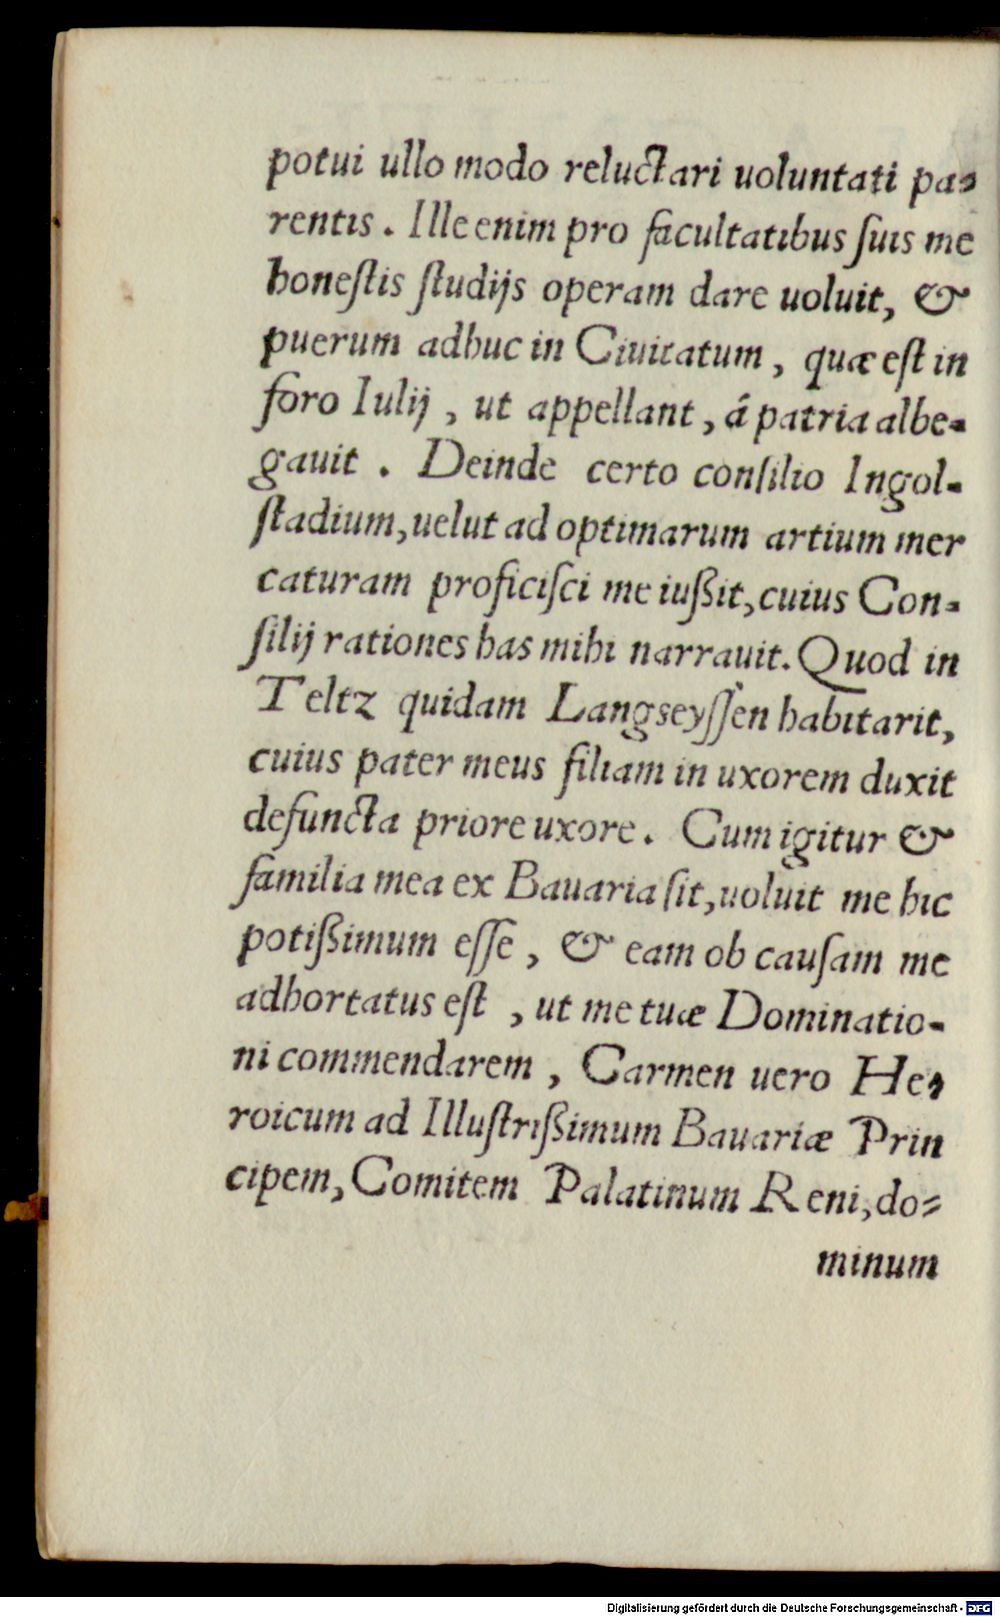 potui ullo modo reluctari uoluntati pa-
rentis. Ille enim pro facultatibus ſuis me
honeſtis ſtudijs operam dare uoluit, &
puerum adhuc in Ciuitatum, quæ eſt in
foro Iulij, ut appellant, á patria albe-
gauit. Deinde certo conſilio Ingol-
ſtadium, uelut ad optimarum artium mer
caturam proficiſci me iußit, cuius Con-
ſilij rationes has mihi narrauit. Quod in
Teltz quidam Langseyſſen habitarit,
cuius pater meus filiam in uxorem duxit
defuncta priore uxore. Cum igitur &
familia mea ex Bauaria ſit, uoluit me hic
potißimum eſſe, & eam ob cauſam me
adhortatus eſt, ut me tuæ Dominatio-
ni commendarem, Carmen uero He-
roicum ad Illuſtrißimum Bauariæ Prin
cipem, Comitem Palatinum Reni, do-
minum
Digitalisierung gefördert durch die Deutsche Forschungsgemeinschaft - DFG